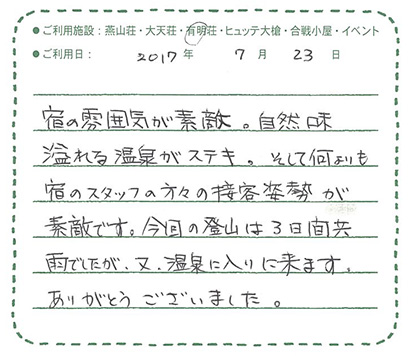 ●ご利用施設：燕山荘・大天荘・有明荘・ヒュッテ大槍・合戦小屋・イベント
●ご利用日： 2017年 7月 23日
宿の雰囲気が素敵。自然味
溢れる温泉がステキ。そして何よりも
宿のスタッフの方々の接客姿勢が
素敵です。今回の登山は3日間共
雨でしたが、又、温泉に入りに来ます。
ありがとうございました。